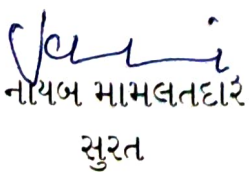 નાયબ મામલતદાર
સુરત